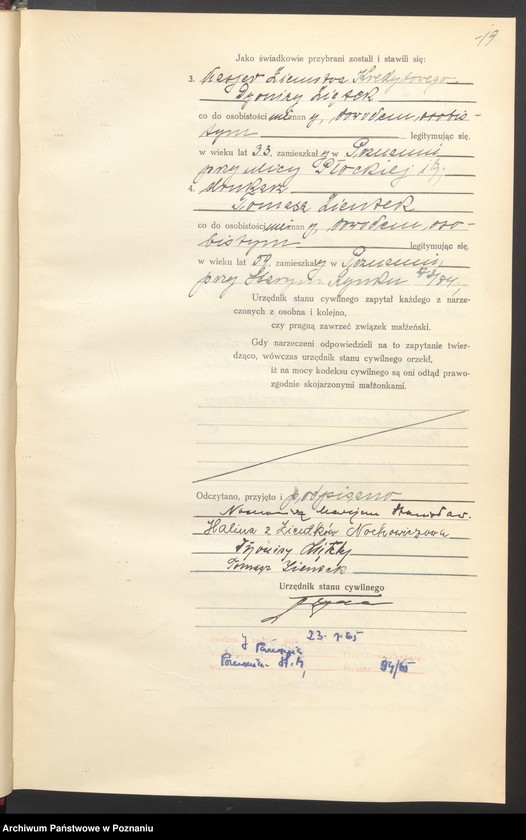 -19
Jako świadkowie przybrani zostali i stawili się:
3. Kasjer Ziemstwa Kredytowego
Dyonizy Ziętek
co do osobistości nieznany, dowodem osobis-
tym legitymując się,
w wieku lat 33, zamieszkały w Poznaniu,
przy ulicy Płockiej 19,
4. drukarz
Tomasz Zientek
co do osobistości nieznany, dowodem oso-
bistym legitymując się,
w wieku lat zamieszkały w Poznaniu,
przy Starym Rynku /84,
Urzędnik stanu cywilnego zapytał każdego z narze-
czonych z osobna i kolejno,
czy pragną zawrzeć związek małżeński.
Gdy narzeczeni odpowiedzieli na to zapytanie twier-
dząco, wówczas urzędnik stanu cywilnego orzekł,
iż na mocy kodeksu cywilnego są oni odtąd prawo-
zgodnie skojarzonymi małżonkami.
Odczytano, przyjęto i podpisano
Marjan Stanisław.
Halina z Zientków
Dyonizy
Tomasz Zientek
Urzędnik stanu cywilnego
23. 65
94/65
Archiwum Państwowe w Poznaniu